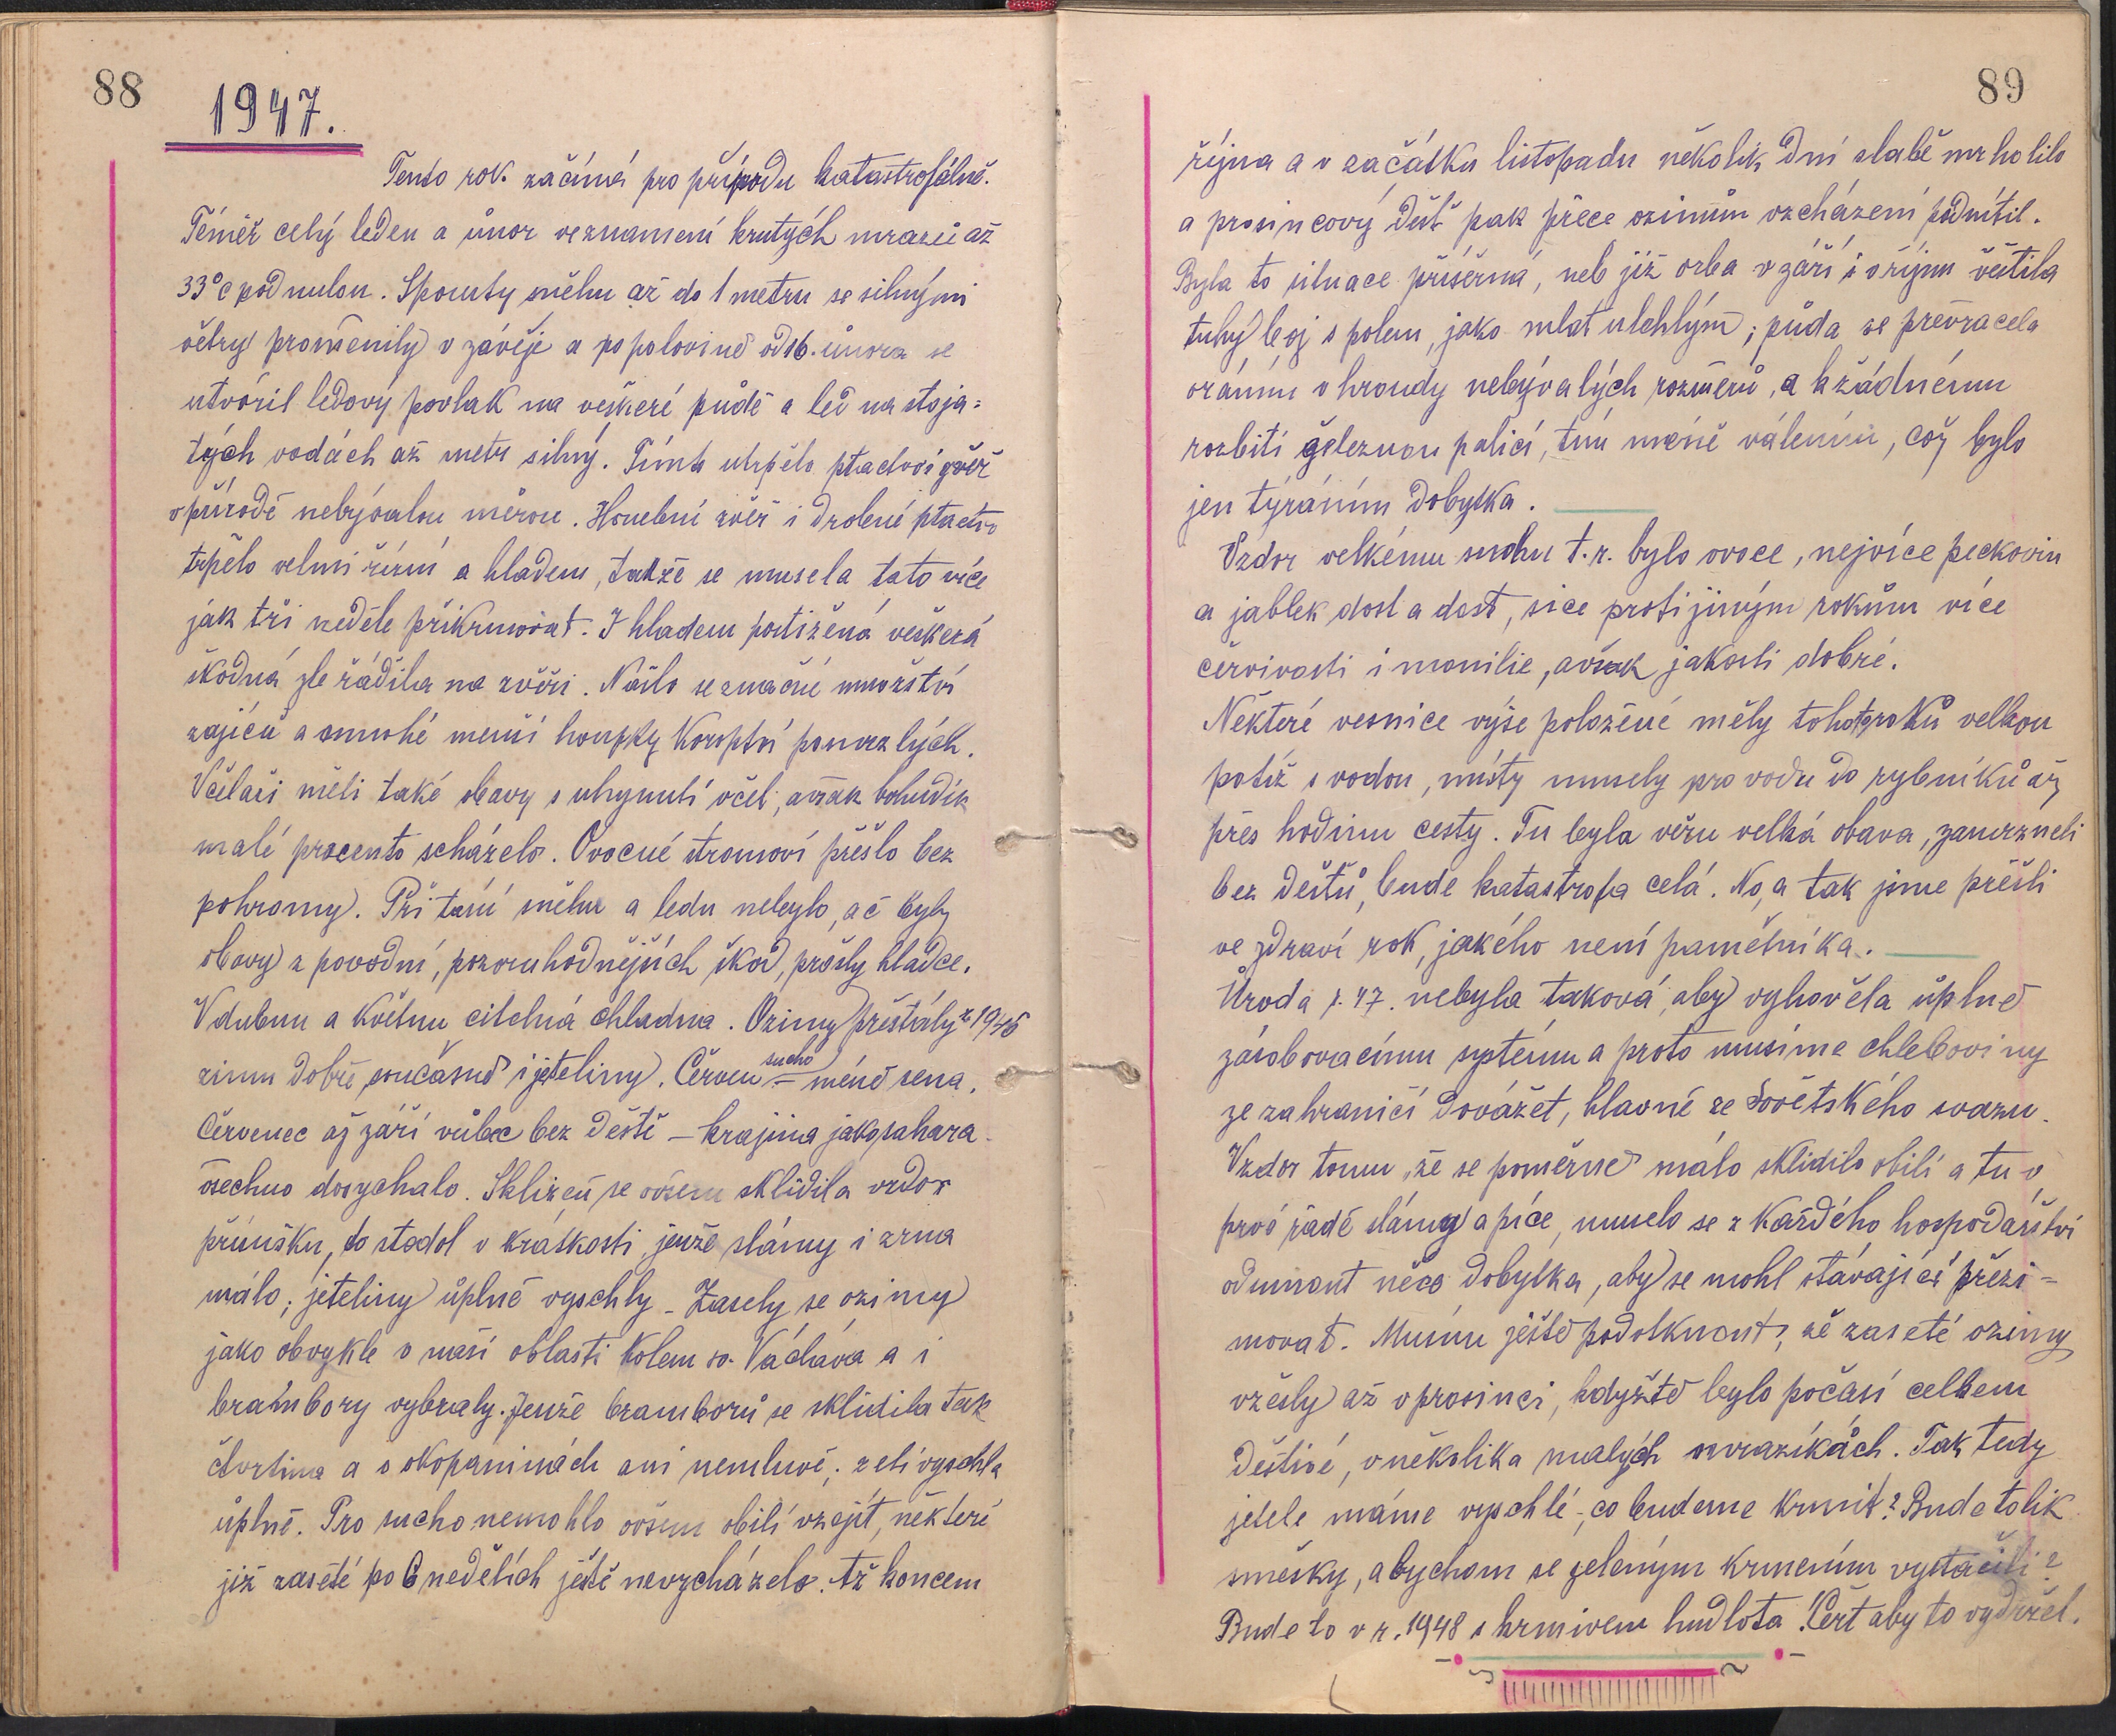 88
1947.
Tento rok začíná pro přírodu katastrofálně.
Téměř celý leden a únor ve znamení krutých mrazů až
33°C pod nulou. Spousty sněhu až do 1 metru se silnými
větry proměnily v závěje a po polovině od 16. února se
utvořil ledový povlak na veškeré půdě a led na stoja=
tých vodách až metr silný. Tímto utrpělo ptactvo i zvěř
v přírodě nebývalou měrou. Honební zvěř i drobné ptactvo
trpělo velmi žízní a hladem, takže se musela tato více
jak tři neděle přikrmovat. I hladem postižená veškerá
škodná zle řádila na zvěři. Našlo se značné množství
zajíců a mnohé menší houfky koroptví pomrzlých.
Včelaři měli také obavy o uhynutí včel, avšak bohudík
malé procento scházelo. Ovocné stromoví přešlo bez
pohromy. Při tání sněhu a ledu nebylo, ač byly
obavy z povodní, pozoruhodnějších škod, prošly hladce.
V dubnu a květnu citelná chladna. Ozimy přestály z 1946
zimu dobře, současně i jeteliny. Červen sucho - méně sena.
Červenec až září vůbec bez deště - krajina jako sahara -
všechno dosychalo. Sklizeň se ovšem sklidila vzdor
průšku, do stodol v krátkosti, jenže slámy i zrna
málo; jeteliny úplně vyschly - Zasely se ozimy
jako obvykle v naší oblasti kolem sv. Václava a i
brambory vybraly. Jenže bramborů se sklidila tak
čtvrtina a o okopaninách ani nemluvě; zelí vyschla
úplně. Pro sucho nemohlo ovšem obilí vzejít, některé
již zaseté po 6 nedělích ještě nevzcházelo. Až koncem
89
října a v začátku listopadu několik dní slabě mrholilo
a prosincový déšť pak přece ozimům vzcházení podnítil.
Byla to situace příšerná, neb již orba v září i v říjnu věštila
tuhý boj s polem, jako mlat ulehlým; půda se převracela
oráním v hroudy nebývalých rozměrů, a k žádnému
rozbití železnou palicí, tím méně válením, což bylo
jen týráním dobytka.
Vzdor velkému suchu t.r. bylo ovoce, nejvíce peckovin
a jablek dost a dost, sice proti jiným rokům více
červivosti i monilie, avšak jakosti dobré.
Některé vesnice výše položené měly tohoto roků velkou
potíž s vodou, místy musely pro vodu do rybníků až
přes hodinu cesty. Tu byla věru velká obava, zamrzne-li
bez dešťů, bude katastrofa celá. No, a tak jsme přešli
ve zdraví rok, jakého není pamětníka.
Úroda r. 47. nebyla taková, aby vyhověla úplně
zásobovacímu systému a proto musíme chleboviny
ze zahraničí dovážet, hlavně ze Sovětského svazu.
Vzdor tomu, že se poměrně málo sklidilo obilí a tu v
prvé řadě slámy a píce, muselo se z každého hospodářství
odumout něco dobytka, aby se mohl stávající přezi=
movat. Musím ještě podotknout, že zaseté ozimy
vzešly až v prosinci, kdyžtě bylo počasí celkem
deštivé, v několika malých mrazíkách. Tak tedy
jetele máme vyschlé -, co budeme krmit? Bude tolik
směsky, abychom se zeleným krmením vystačili?
Bude to v r. 1948 s krmivem hudlota! Čert aby to vydržel.